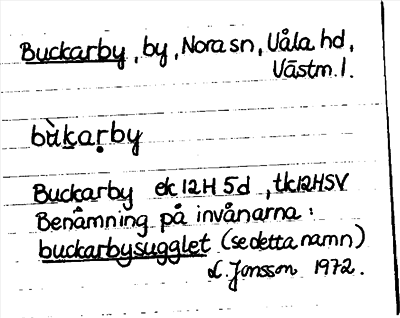 Buckarby, by, Nora sn, Våla hd,
Västm. l.
bùk̯aṛby
Buckarby ek 12H 5d, tk 12H SV
Benämning på invånarna:
buckarbysugglet (se detta namn)
L. Jonsson 1972.